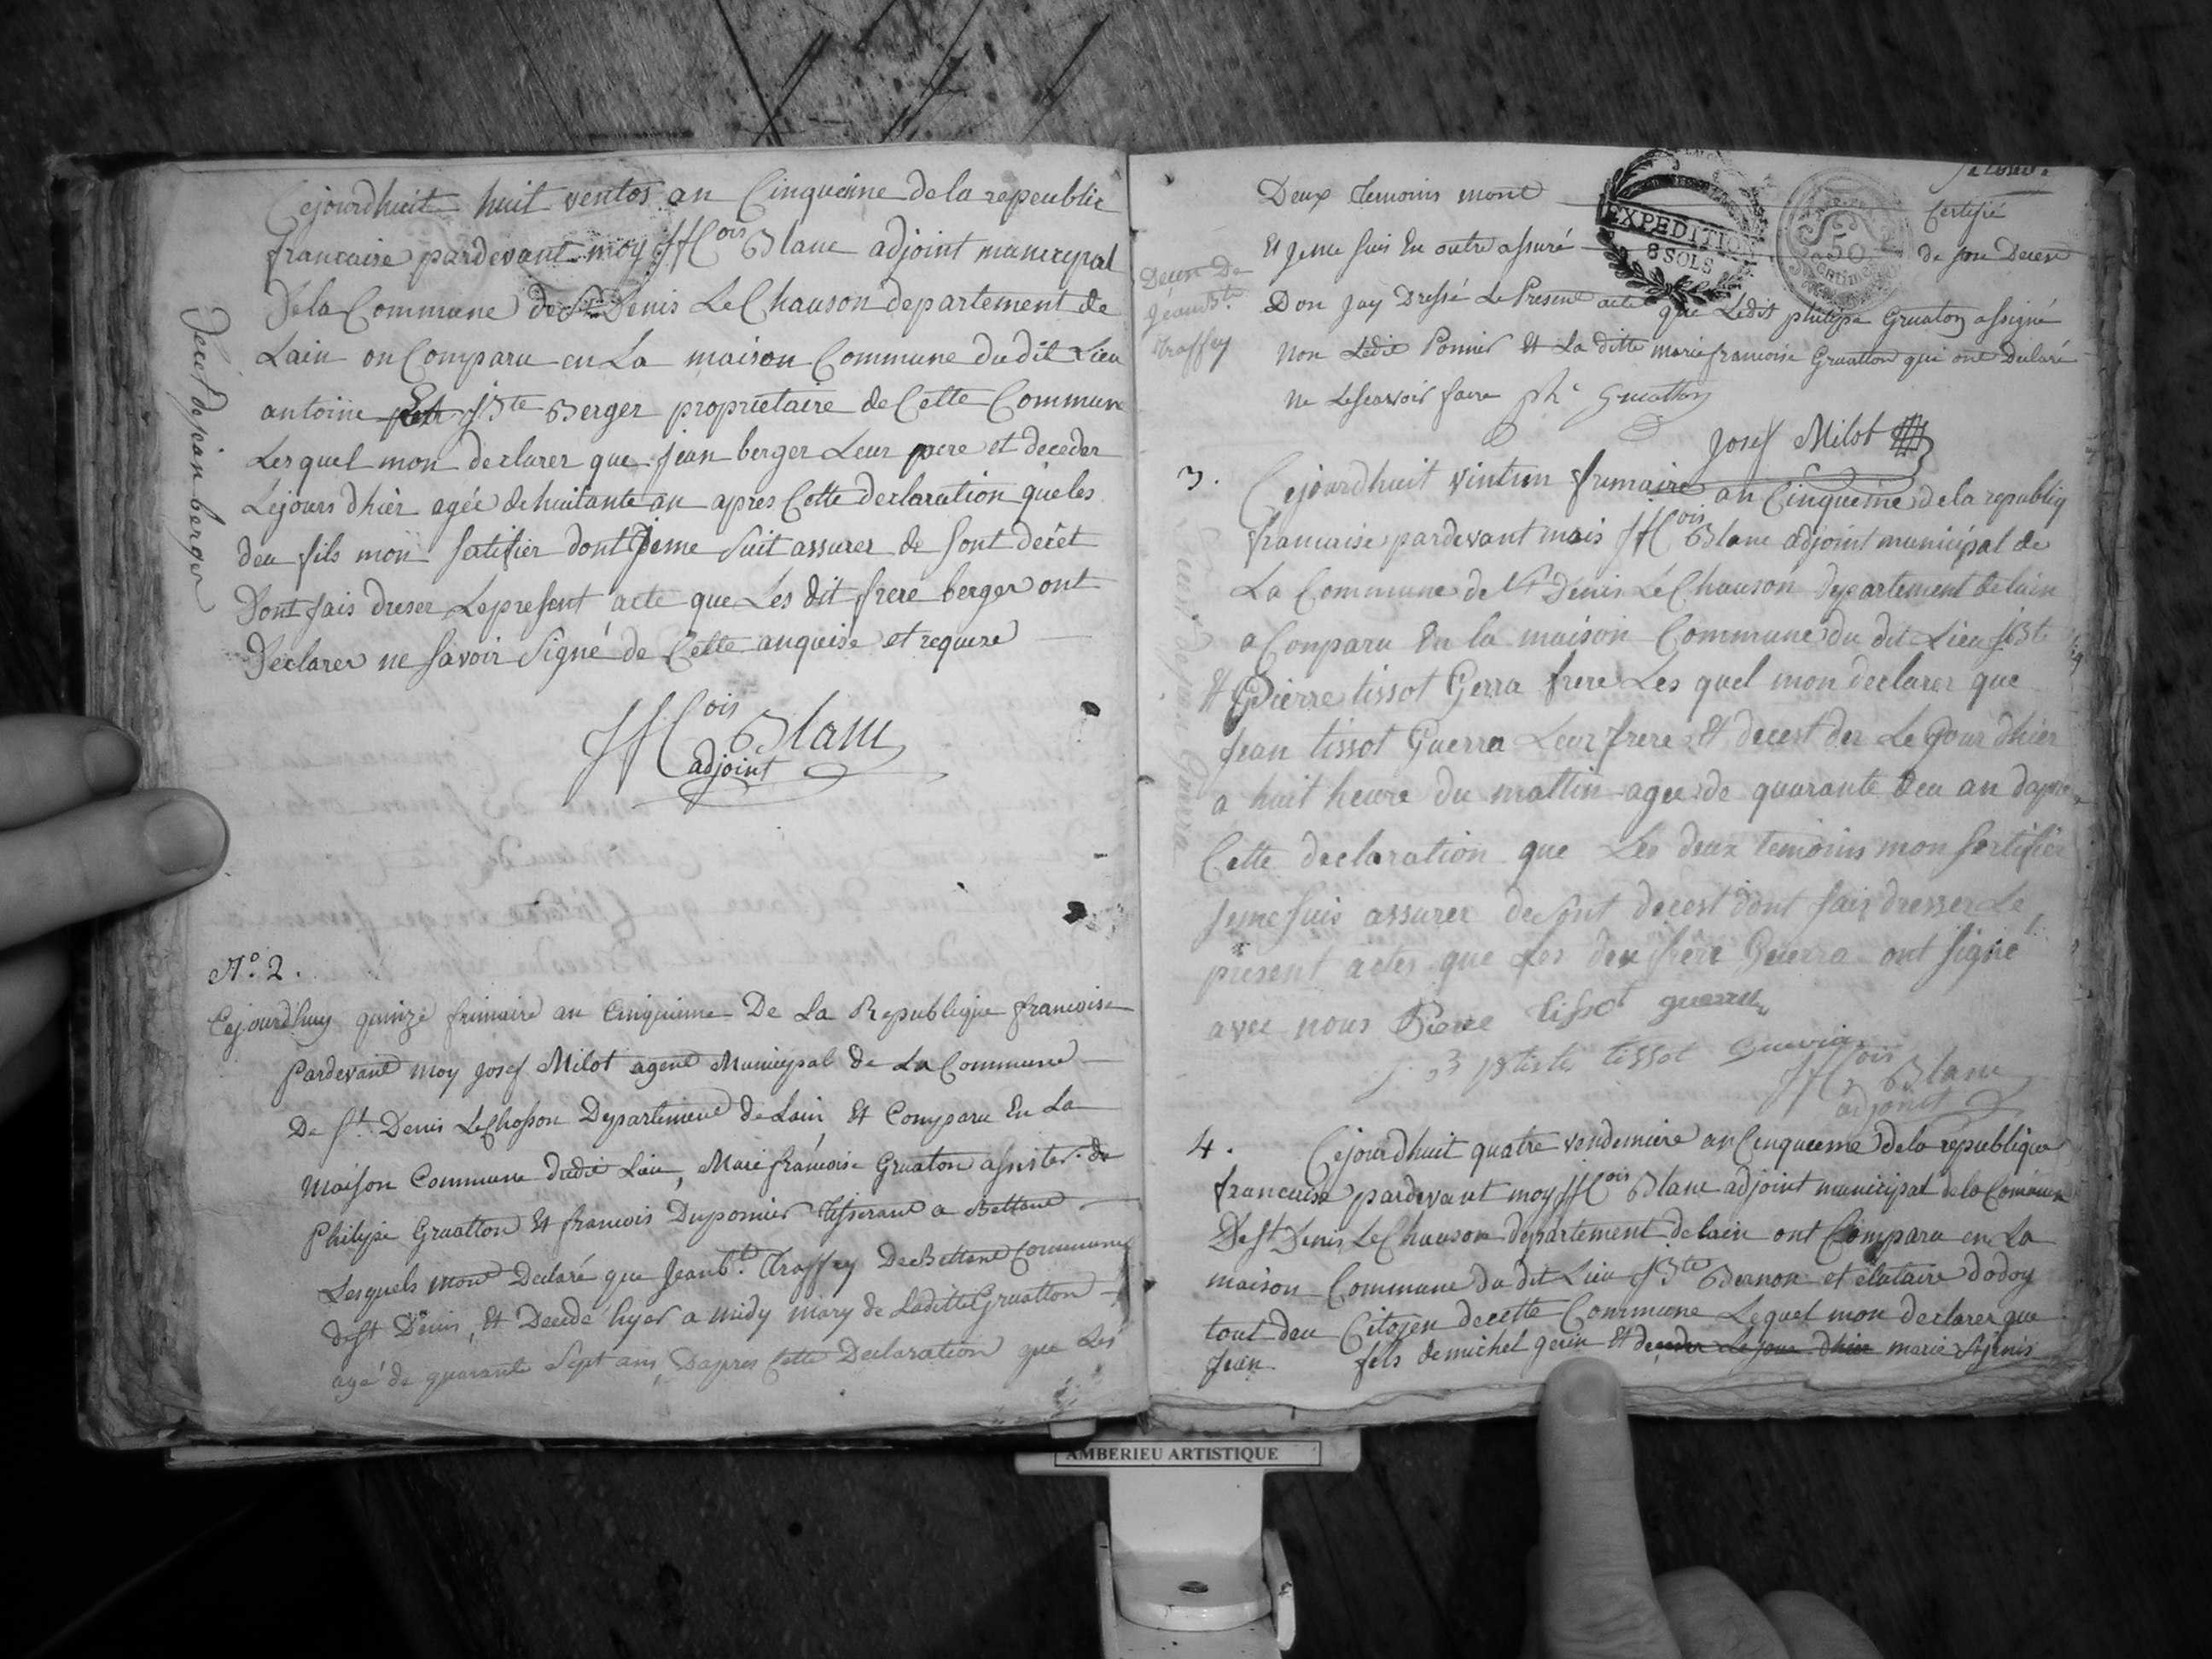 Cejourdhuit huit ventos an Cinqueime de la repeublic
francaise pardevant moy ffCois Blanc adjoint manicipal
De la Commune de St Denis Le Chauson departement de
Lain on Comparu en La maison Commune du dit Lieu
antoine et jBte Berger proprietaire de Cette Commune
Les quel mon declarer que jean berger Leur pere et deceder
Le jours dhier agée de huitante an apres Cette declaration que les
deu fils mon sertifier dont Jeme Suit assurer de sont decêt
Dont fais dreser Le present acte que Les dit frere berger ont
Declarer ne savoir Signé de Cette anquise et requise
ffCois Blanc
adjoint
Decet de jean berger
No. 2.
Cejourdhuy quinze frimaire an Cinquieme De La Republique francoise
Pardevant moy josef Milot agent Municipal de La Commune
De St. Denis LeChosson Departement de Lain Et Comparu En La
Maison Commune dudit Lieu, Marie francoise Gruaton assister de
Philipe Gruatton Et francois Duponier Tisserant a Bettant
Lesquels mont Declaré que Jeanbt. Traffey De Bettant Commune
de St Denis, Et Decedé hyer a midy mary de Laditte Gruatton
agé de quarante Sept ans, Dapres Cette Declaration que Les
Deux temoins mont Certifié
Et Jeme suis En outre assuré de son Deces
Don Jay Dressé Le Present acte que Ledit philipe Gruaton a signé
Non Ledit Ponnier Et La ditte marie francoise Gruatton qui ont Declaré
Ne Le scavoir faire ph Gruatton
Josef Milot
Deces De
jeanbte.
traffey
EXPEDITION
8 SOLS
50
centimes
3. Cejourdhuit vintun frimaire an Cinqueime de la republiq
francaise pardevant mois ffCois Blanc adjoint municipal de
La Commune de St Denis Le Chauson departement de lain
a Conparu En la maison Commune du dit Lieu jBte
et Pierre tissot Gerra frere Les quel mon declarer que
Jean tissot Guerra Leur frere Et decest der Le Jour dhier
a huit heure du mattin agee de quarante deu an dapres
Cette declaration que Les deux temoins mon sertifier
Jeme suis assurer de sont decest dont fais dresser Le
present actes que Les deu frere Guerra ont signé
avec nous Pierre tissot guerra
j B ptiste tissot
ffCois Blanc
adjoint
4. Cejourdhuit quatre vendemiere an Cinqueme de la republique
francaise pardevant moy ffCois Blanc adjoint municipal de la Commune
De St Denis Le Chauson departement de lain ont Comparu en La
maison Commune du dit Lieu jBte Bernon et elataire dodoy
tout deu Citoyen de cette Commune Lequel mon declarer que
jean fils de michel gerin Et deceder Le jour dhier marie St jenis
AMBERIEU ARTISTIQUE